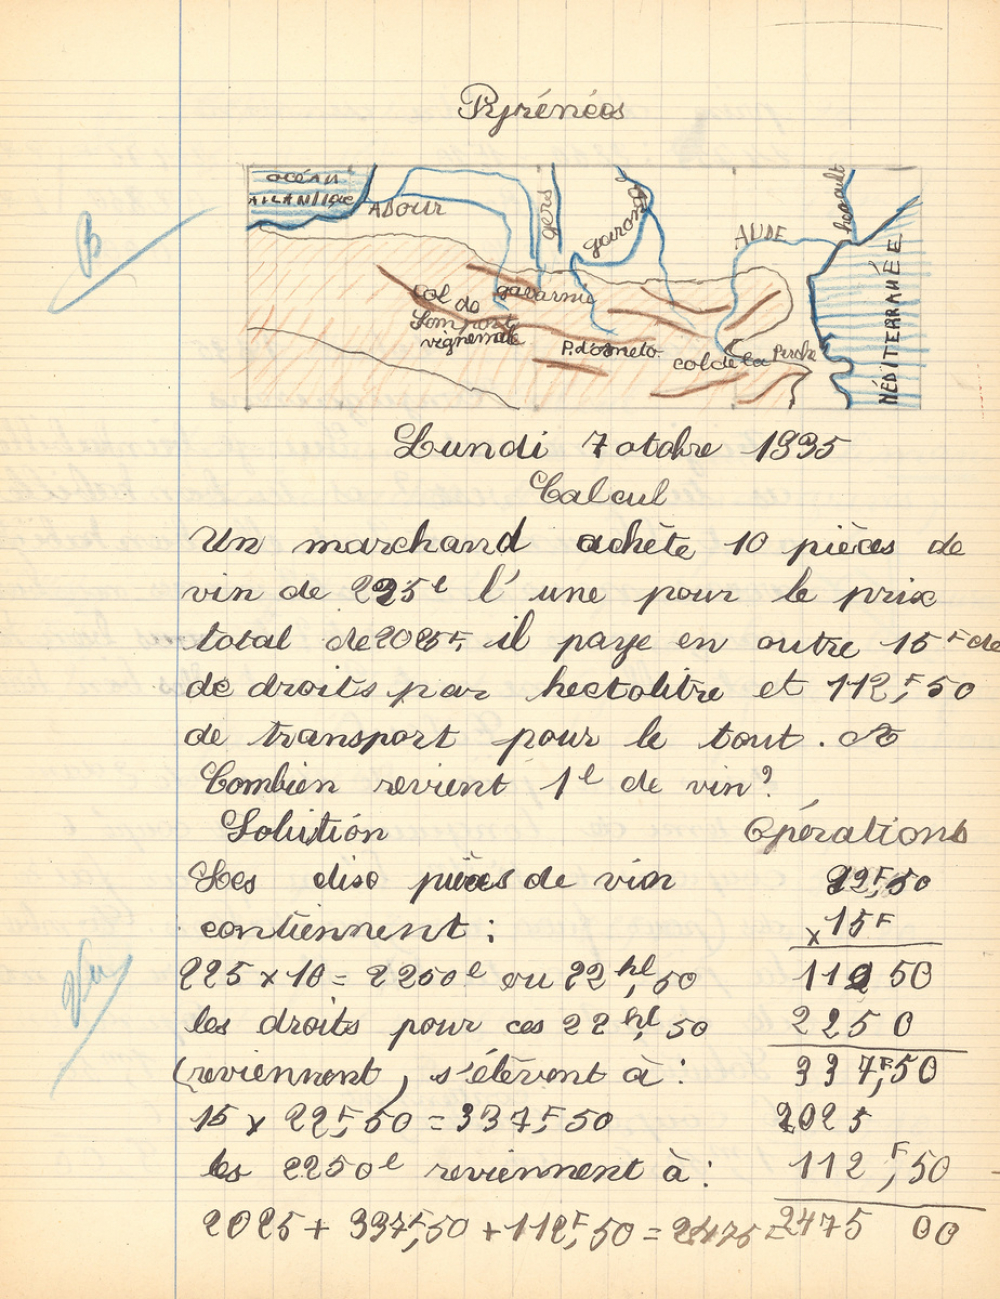 Pyrénées
OCÉAN
ATLANTIQUE
ADOUR
gers
garonne
AUDE
herault
MÉDITERRANÉE
gavarnie
col de
Somport
vignemale
P.d'oo
col de la Perche
B
Lundi 7 otobre 1935
Calcul
Un marchand achète 10 pièces de
vin de 225l l'une pour le prix
total de 2025F, il paye en outre 15F de
de droits par hectolitre et 112F,50
de transport pour le tout. A
Combien revient 1l de vin?
Solution Opérations
Les dix pièces de vin 22F,50
contiennent : x 15F
225 x 10 = 2250l ou 22hl,50 112 50
les droits pour ces 22hl,50 225 0
(reviennent, s'élèvent à : 337F,50
15 x 22F,50 = 337F,50 2025
les 2250l reviennent à : 112F,50
2025 + 337F,50 + 112F,50 = 2475 2475 00
Vu